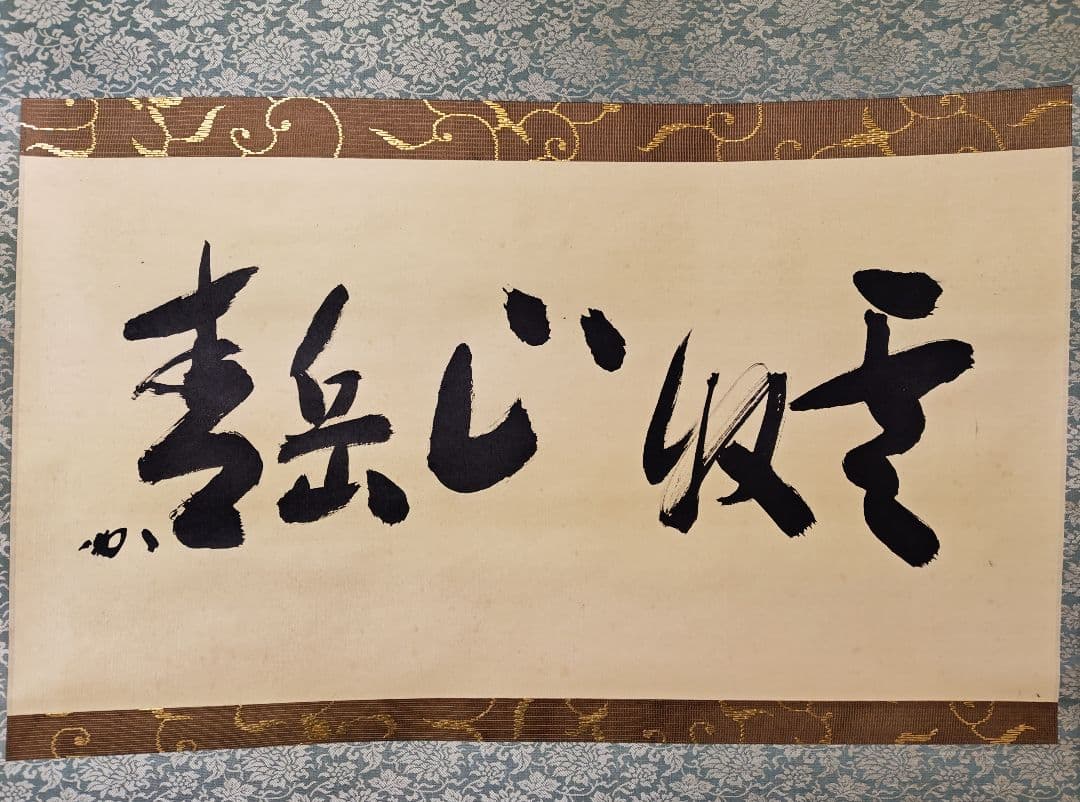 雲収山岳青